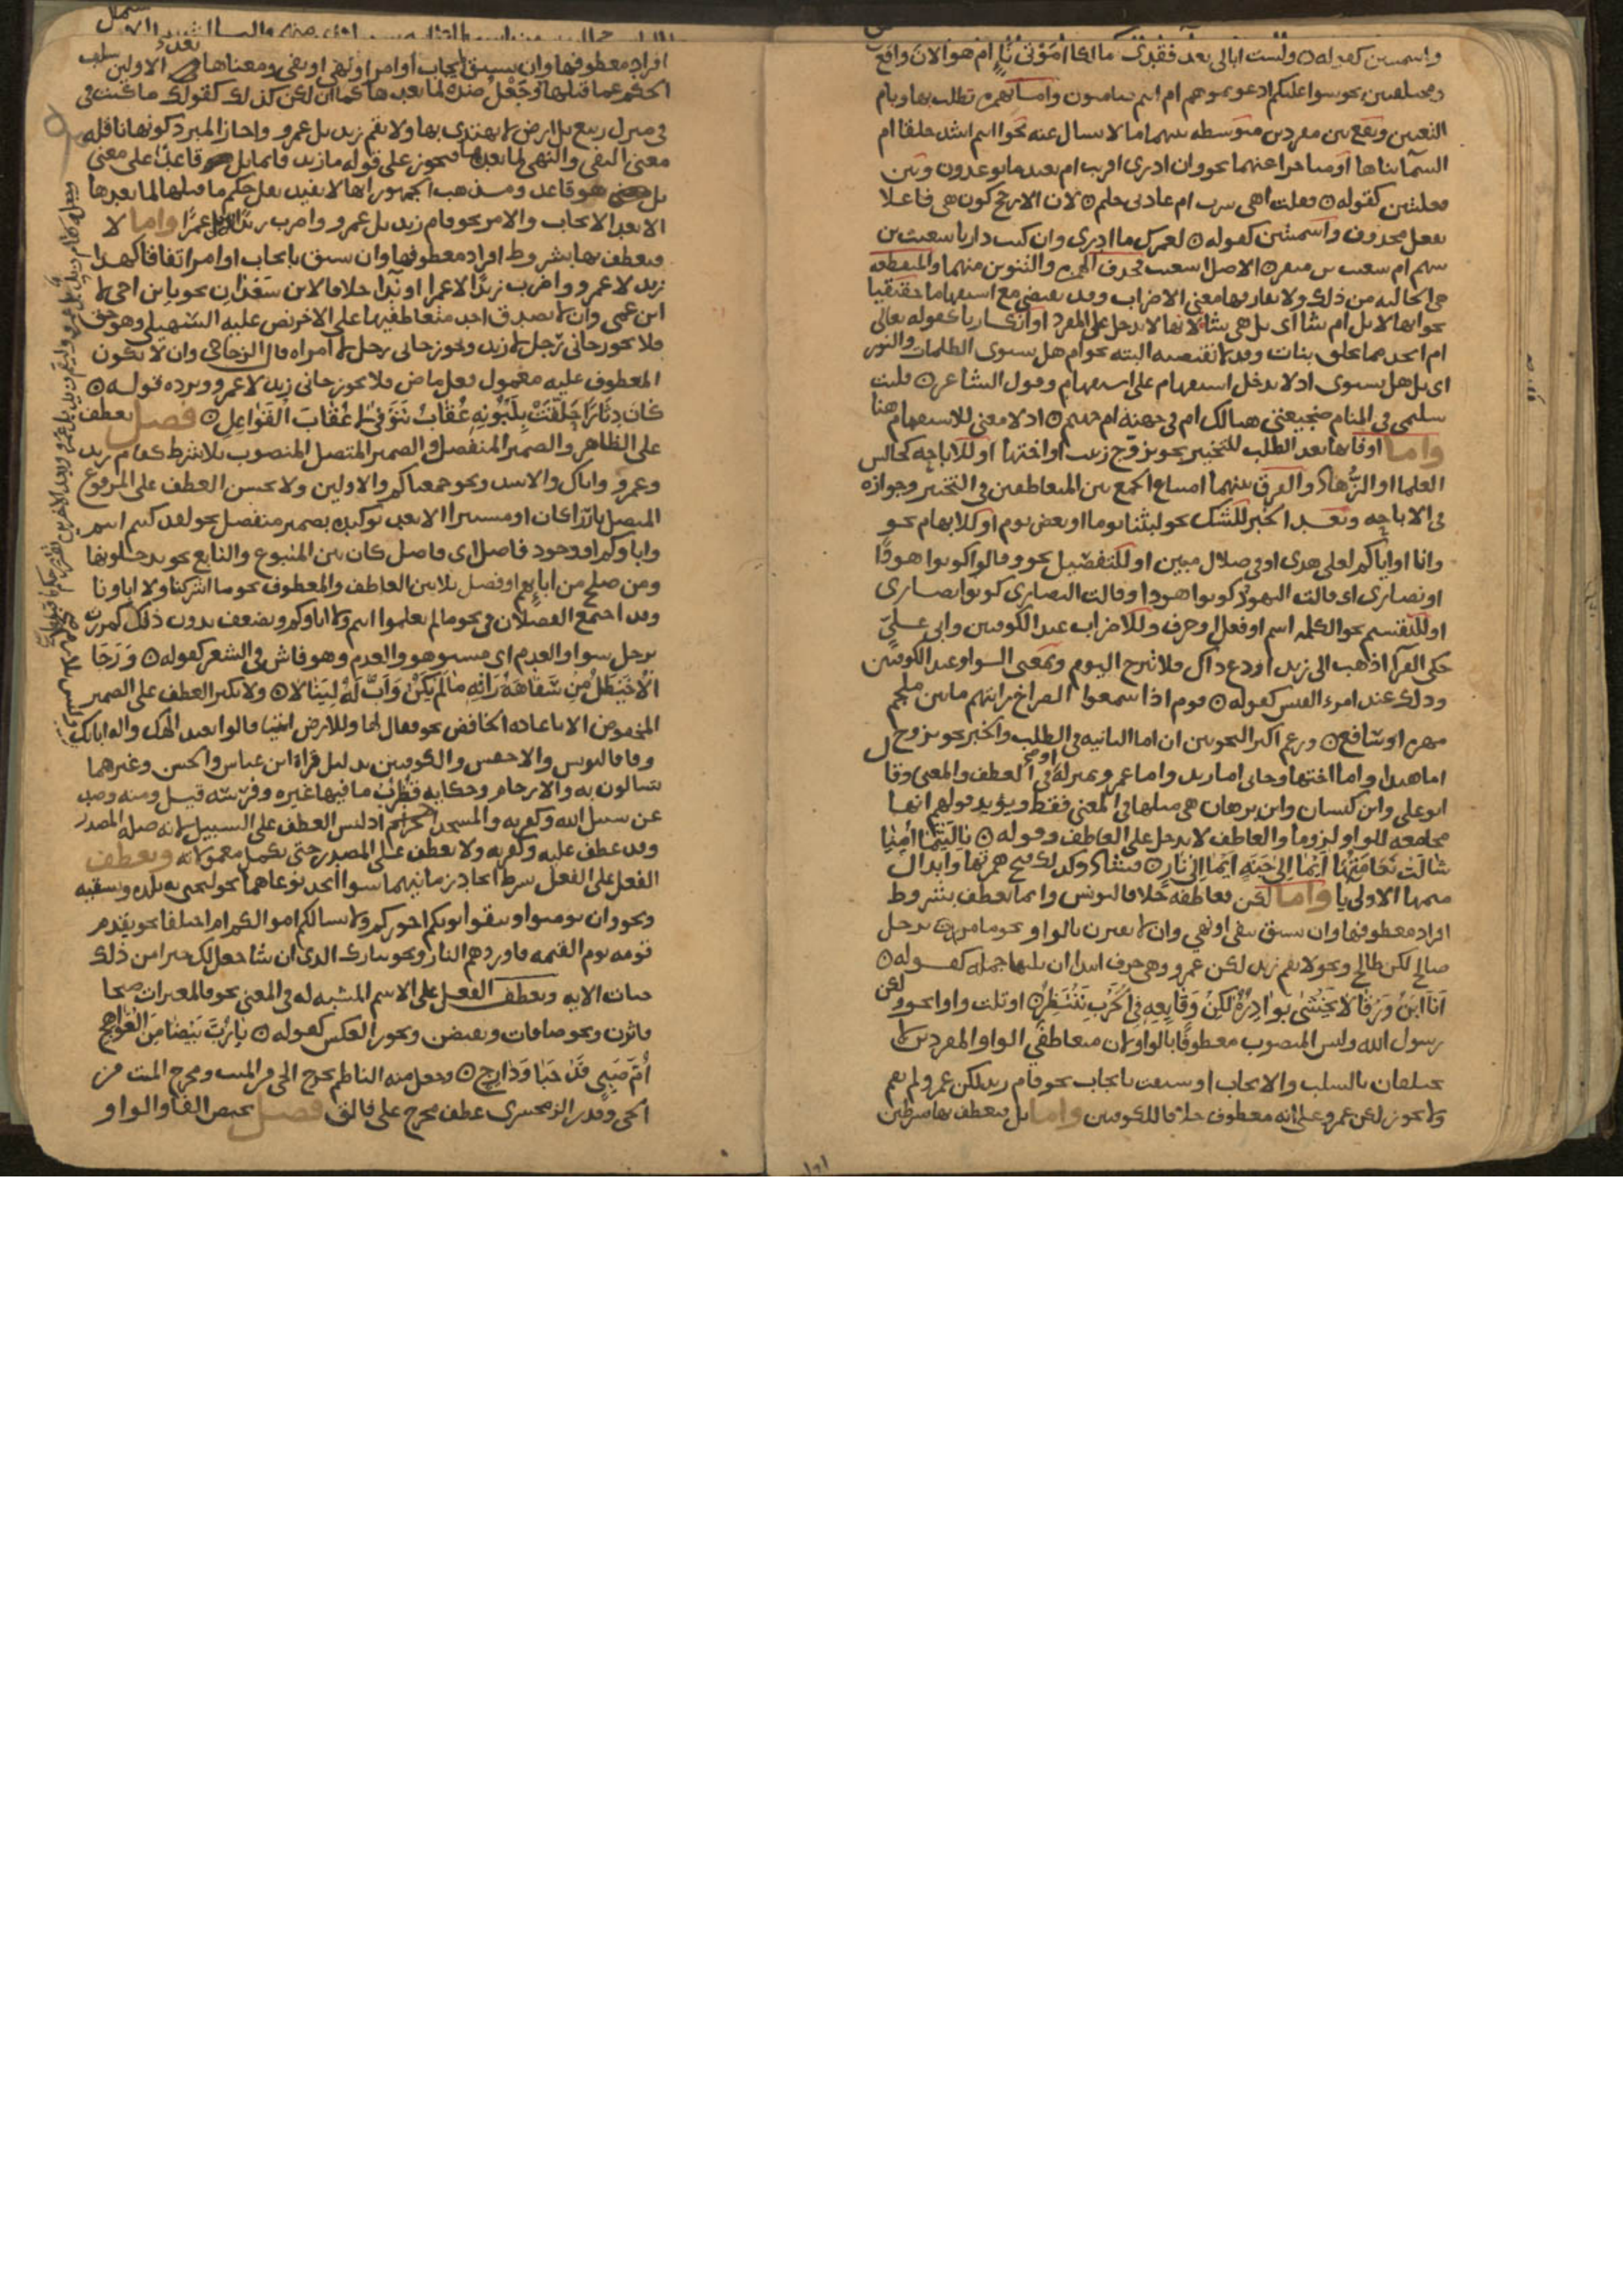 واسميتين كقوله ولست ابالى بعد فقدى مالكا اموتى ناء ام هو الان واقع
ومختلفتين نحو سوا عليكم ادعوتموهم ام انتم صامتون واما بهمزه تطلب بها وبام
التعيين وتقع بين مفردين متوسطه بينهما ما لا يسال عنه نحو اانتم اشد خلقا ام
السمآ بناها او متاخرا عنهما نحو وان ادرى اقريب ام بعيد ما توعدون وبين
فعليتين كقوله فقلت اهى سرت ام عادنى حلم لان الارجح كون هى فاعلا
بفعل محذوف واسميتين كقوله لعمرك ما ادرى وان كنت داريا شعيث بن
سهم ام شعيث بن منقر الاصل اشعيث فحذف الهمزه والتنوين منهما والمنقطعه
هى الخاليه من ذلك ولا يفارقها معنى الاضراب وقد تقتضى مع استفهاما حقيقيا
نحو انها لابل ام شآ اى بل هى شآ لانها لا تدخل على المفرد او انكاريا كقوله تعالى
ام اتخذ مما يخلق بنات وقد لا تقتضيه البته نحو ام هل تستوى الظلمات والنور
اى بل هل تستوى اذ لا يدخل استفهام على استفهام وقول الشاعر فليت
سليمى فى المنام ضجيعتى هنالك ام فى جنة ام جهنم اذ لا معنى للاستفهام هنا
واما او فانها بعد الطلب للتخيير نحو تزوج زينب او اختها او للاباحه كجالس
العلما او الزهاد والفرق بينهما امتناع الجمع بين المتعاطفين فى التخيير وجوازه
فى الاباحه وبعد الخبر للشك نحو لبثنا يوما او بعض يوم او للابهام نحو
وانا او اياكم لعلى هدى او فى ضلال مبين او للتفضيل نحو وقالوا كونوا هودًا
او نصارى اى قالت اليهود كونوا هودا وقالت النصارى كونوا نصارى
او للتقسيم نحو الكلمه اسم او فعل او حرف وللاضراب عند الكوفيين وابى على
حكى الفرآ اذهب الى زيد او دع ذاك فلا تبرح اليوم وبمعنى الواو عند الكوفيين
وذلك عند امن اللبس كقوله قوم اذا سمعوا الصراخ رايتهم ما بين ملجم
مهره او سافع وزعم اكثر النحويين ان اما الثانيه فى الطلب والخبر نحو تزوج
اما هندا واما اختها وجانى اما زيد واما عمرو بمنزلة او فى العطف والمعنى وقال
ابو على وابن كيسان وابن برهان هى مثلها فى المعنى فقط ويؤيد قولهم انها
مجامعه للواو لزوما والعاطف لا يدخل على العاطف وقوله ياليتما امنا
شالت نعامتها ايما الى جنة ايما الى نار فشاذ وكذلك فتح همزتها وابدال
ميمها الاولى يا واما لكن فعاطفه خلافا ليونس وانما تعطف بشروط
افراد معطوفها وان تسبق بنفى او نهى وان لا تقترن بالواو نحو ما مررت برجل
صالح لكن طالح ونحو لا يقم زيد لكن عمرو وهى حرف ابتدا ان تلتها جمله كقوله
انا ابن ورقا لا تخشى بوادره لكن وقايعه فى الحرب تنتظر او تلت واوا نحو ولكن
رسول الله وليس المنصوب معطوفا بالواو لان متعاطفى الواو المفردين لا
يختلفان بالسلب والايجاب او سبقت بايجاب نحو قام زيد لكن عمرو لم يقم
ولا يجوز لكن عمرو على انه معطوف خلافا للكوفيين واما بل فيعطف بها بشرطين
افراد معطوفها وان تسبق بايجاب او امر او نهى او نفى ومعناها بعد الاولين سلب
الحكم عما قبلها وجعل ضده لما بعدها كما ان لكن كذلك كقولك ما كنت فى
فى منزل ربيع بل ارض لا يهتدى بها ولا يقم زيد بل عمرو واجاز المبرد كونها ناقله
معنى النفى والنهى لما بعدها فيجوز على قوله ما زيد قايما بل قاعدا على معنى
بل هو قاعد ومذهب الجمهور انها لا تفيد نقل حكم ما قبلها لما بعدها
الا بعد الايجاب والامر نحو قام زيد بل عمرو واضرب زيدا بل عمرا واما لا
فيعطف بها بشروط افراد معطوفها وان تسبق بايجاب او امر اتفاقا كهذا
زيد لا عمرو واضرب زيدا لا عمرا او ندا خلافا لابن سعدان نحو يا بن اخى لا
ابن عمى وان لا يصدق احد متعاطفيها على الاخر نص عليه السهيلى وهو حق
فلا يجوز جانى رجل لا زيد ويجوز جانى رجل لا امراه قال الزجاجى وان لا يكون
المعطوف عليه معمول فعل ماض فلا يجوز جانى زيد لا عمرو ويرده قوله
كان دثارا حلقت بلبونه عقاب تنوفى لا عقاب القواعل فصل يعطف
على الظاهر والضمير المنفصل والضمير المتصل المنصوب بلا شرط كقام زيد
وعمرو واياك والاسد ونحو جمعناكم والاولين ولا يحسن العطف على المرفوع
المتصل بارزا كان او مستترا الا بعد توكيده بضمير منفصل نحو لقد كنتم انتم
واباوكم او وجود فاصل اى فاصل كان بين المتبوع والتابع نحو يدخلونها
ومن صلح من ابايهم او فصل بلا بين العاطف والمعطوف نحو ما اشركنا ولا اباونا
وقد اجتمع الفصلان فى نحو مالم تعلموا انتم ولا اباوكم ويضعف بدون ذلك كمررت
برجل سوا والعدم اى مستو هو والعدم وهو فاش فى الشعر كقوله ورجا
الاخيطل من سفاهة رايه مالم يكن واب له لينالا ولا يكثر العطف على الضمير
المخفوض الا باعاده الخافض نحو فقال لها وللارض ايتيا قالوا نعبد الهك واله ابايك
وفاقا ليونس والاخفش والكوفيين بدليل قراة ابن عباس والحسن وغيرهما
تسالون به والارحام وحكايه قطرب ما فيها غيره وفرسه قيل ومنه وصد
عن سبيل الله وكفر به والمسجد الحرام اذ ليس العطف على السبيل لانه صلة المصدر
وقد عطف عليه وكفر به ولا يعطف على المصدر حتى تكمل معمولاته ويعطف
الفعل على الفعل بشرط اتحاد زمانيهما سوا اتحد نوعاهما نحو لنحيى به بلده ونسقيه
ونحو وان تومنوا وتتقوا يوتكم اجوركم ولا يسالكم اموالكم ام اختلفا نحو يقدم
قومه يوم القيمه فاوردهم النار ونحو تبارك الذى ان شا جعل لك خيرا من ذلك
جنات الايه ويعطف الفعل على الاسم المشبه له فى المعنى نحو فالمغيرات صبحا
فاثرن ونحو صافات ويقبضن ويجوز العكس كقوله يا رب بيضا من العواهج
ام صبى قد حبا ودارج وجعل منه الناظم يخرج الحى من الميت ومخرج الميت من
الحى وقدر الزمخشرى عطف مخرج على فالق فصل تختص الفا والواو